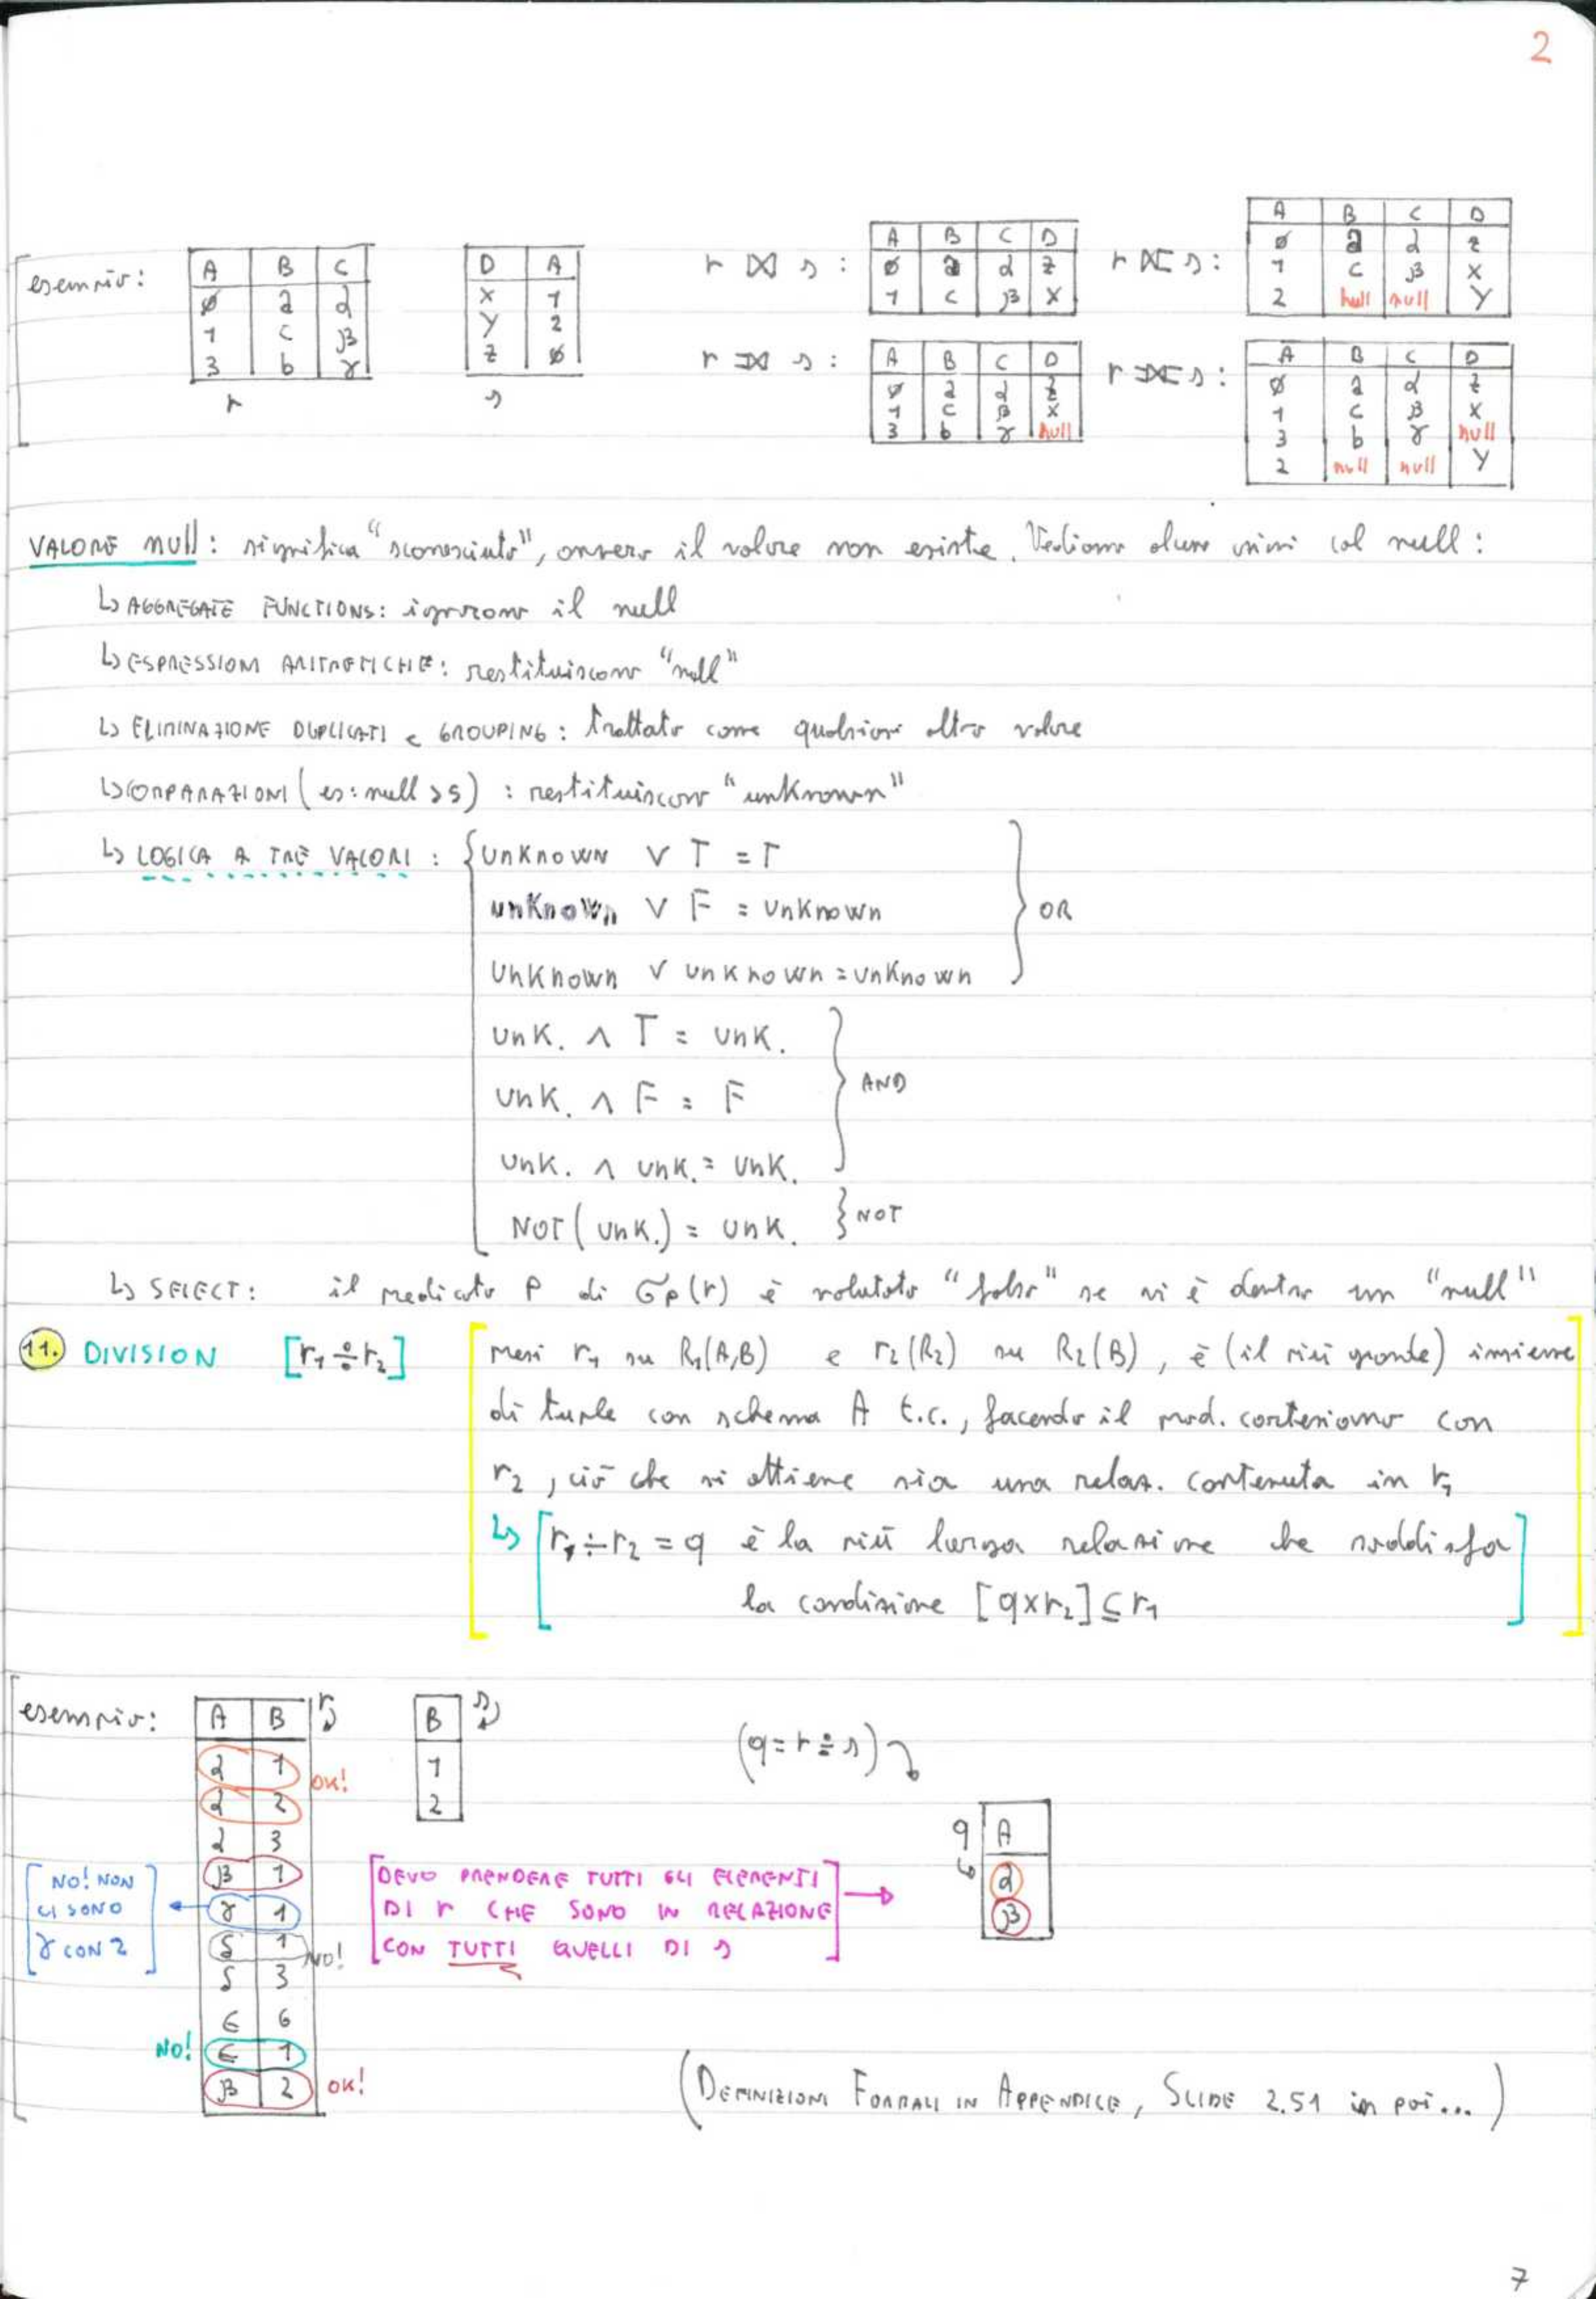 2
esempio:
A B C
ø a α
1 c β
3 b γ
r
D A
x 1
y 2
z ø
s
r ⋈ s :
A B C D
ø a α z
1 c β x
r ⟖ s :
A B C D
ø a α z
1 c β x
2 null null y
r ⟕ s :
A B C D
ø a α z
1 c β x
3 b γ null
r ⟗ s :
A B C D
ø a α z
1 c β x
3 b γ null
2 null null y
VALORE null : significa "sconosciuto", ovvero il valore non esiste. Vediamo alcune col null :
↳ AGGREGATE FUNCTIONS: ignorano il null
↳ ESPRESSIONI ARITMETICHE: restituiscono "null"
↳ ELIMINAZIONE DUPLICATI e GROUPING : trattato come qualsiasi altro valore
↳ COMPARAZIONI (es: null > 5) : restituiscono "unknown"
↳ LOGICA A TRE VALORI : { unknown ∨ T = T
unknown ∨ F = unknown } OR
unknown ∨ unknown = unknown
unk. ∧ T = unk.
unk. ∧ F = F } AND
unk. ∧ unk. = unk.
NOT (unk.) = unk. } NOT
↳ SELECT: il predicato P di σp(r) è valutato "falso" se vi è dentro un "null"
11. DIVISION [r1 ÷ r2] [presi r1 su R1(A,B) e r2(R2) su R2(B), è (il più grande) insieme
di tuple con schema A t.c., facendo il prod. cartesiano con
r2, ciò che si ottiene sia una relaz. contenuta in r1
↳ [r1 ÷ r2 = q è la più larga relazione che soddisfa
la condizione [q×r2] ⊆ r1 ]
esempio:
A B r
α 1
α 2 OK!
α 3
β 1
γ 1
δ 1 NO!
δ 3
ϵ 6
NO! ϵ 1
β 2 OK!
[NO! NON
CI SONO
γ CON 2]
B s
1
2
(q = r ÷ s)
[DEVO PRENDERE TUTTI GLI ELEMENTI
DI r CHE SONO IN RELAZIONE
CON TUTTI QUELLI DI s] →
q A
α
β
(DEFINIZIONI FORMALI IN APPENDICE, SLIDE 2.51 in poi...)
7